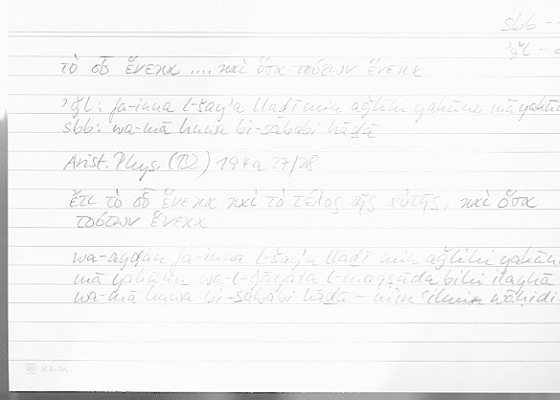 sbb -
'ġl -
τὸ οὗ ἕνεκα .... καὶ ὅσα τούτων ἕνεκα
'ġl: fa-inna l-šay'a lladī min aġlihi yakūnu mā yakūnu
sbb: wa-mā huwa bi-sababi hāḏā
Arist. Phys. (B2) 194a 27/28
ἔτι τὸ οὗ ἕνεκα καὶ τὸ τέλος τῆς αὐτῆς, καὶ ὅσα
τούτων ἕνεκα
wa-ayḍan fa-inna l-šay'a lladī min aġlihi yakūnu
mā yakūnu wa-l-ġāyata l-maqṣūda bihi ilayhā
wa-mā huwa bi-sababi hāḏā - min 'ilmin wāḥidin